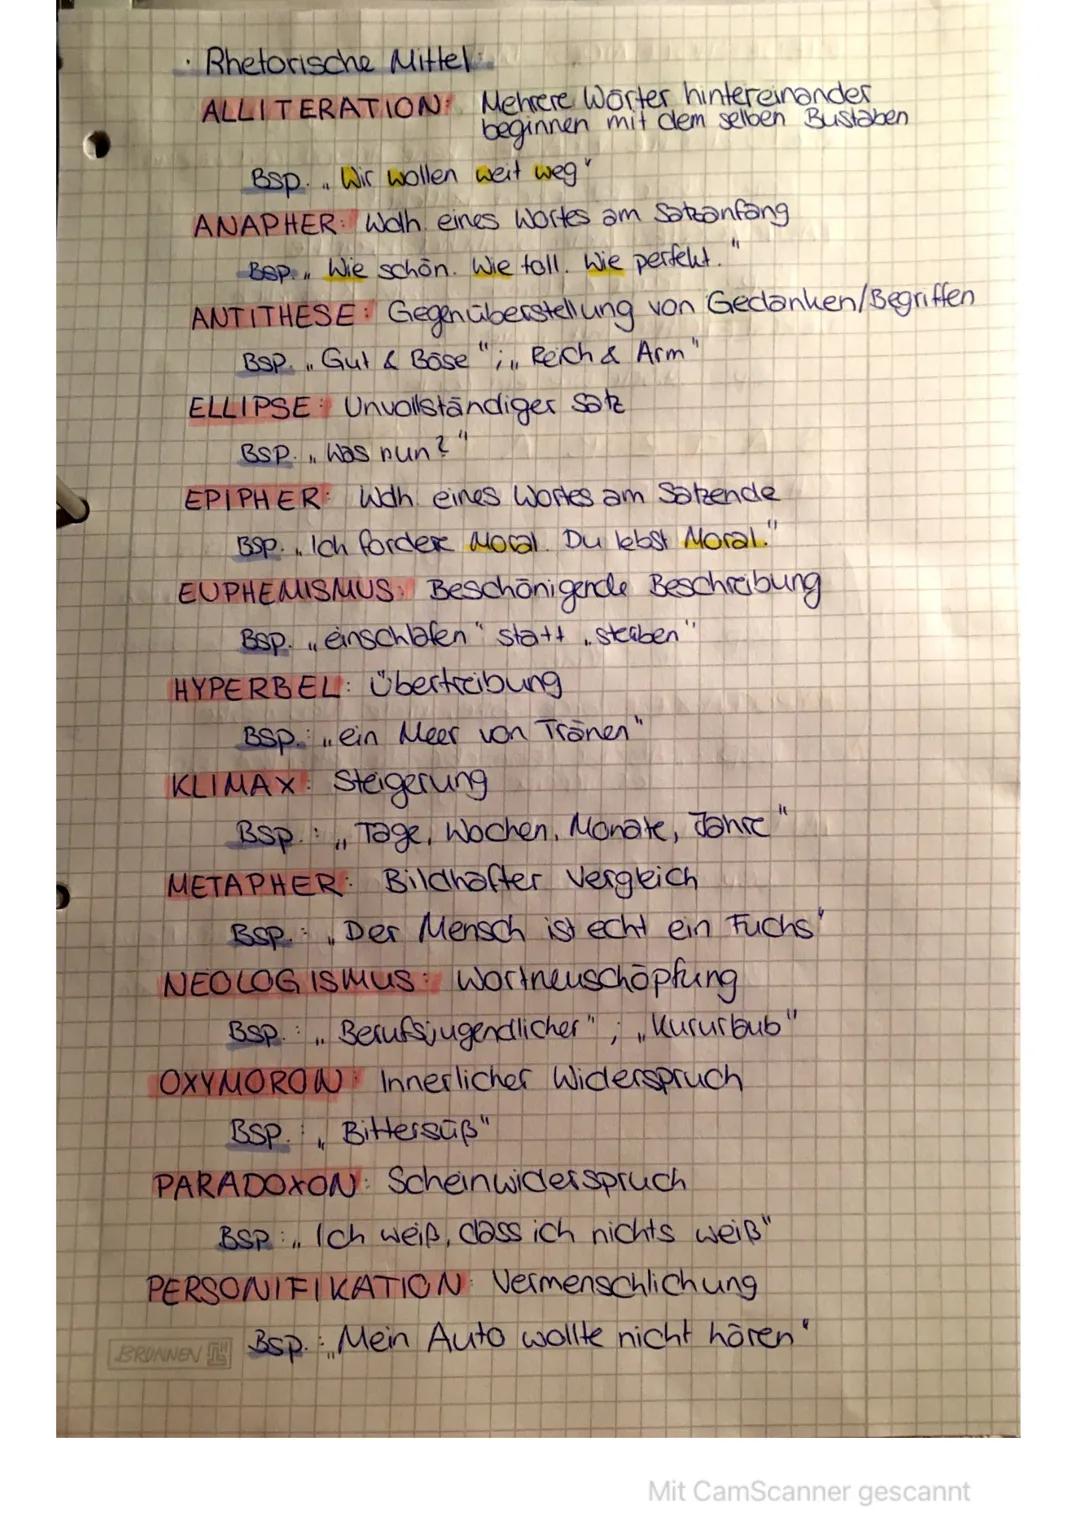 · Rhetorische Mittel:
ALLITERATION: Mehrere Wörter hintereinander
beginnen mit dem selben Bustaben
Bsp. „Wir wollen weit weg"
ANAPHER: Wdh. eines Wortes am Satzanfang
Bsp. „Wie schön. Wie toll. Wie perfekt."
ANTITHESE: Gegenüberstellung von Gedanken/Begriffen
BSP. „Gut & Böse"; „Reich & Arm"
ELLIPSE: Unvollständiger Satz
BSP. „Was nun?"
EPIPHER: Wdh. eines Wortes am Satzende
BSP. „Ich fordere Moral. Du lebst Moral."
EUPHEMISMUS: Beschönigende Beschreibung
Bsp. „einschlafen" statt „sterben"
HYPERBEL: Übertreibung
BSP.: „ein Meer von Tränen"
KLIMAX: Steigerung
Bsp.: „Tage, Wochen, Monate, Jahre"
METAPHER: Bildhafter Vergleich
BSP.: „Der Mensch ist echt ein Fuchs"
NEOLOGISMUS: Wortneuschöpfung
BSP.: „Berufsjugendlicher"; „Kururlaub"
OXYMORON: Innerlicher Widerspruch
BSP.: „Bittersüß"
PARADOXON: Scheinwiderspruch
BSP.: „Ich weiß, dass ich nichts weiß"
PERSONIFIKATION: Vermenschlichung
Bsp.: „Mein Auto wollte nicht hören"
BRUNNEN
Mit CamScanner gescannt